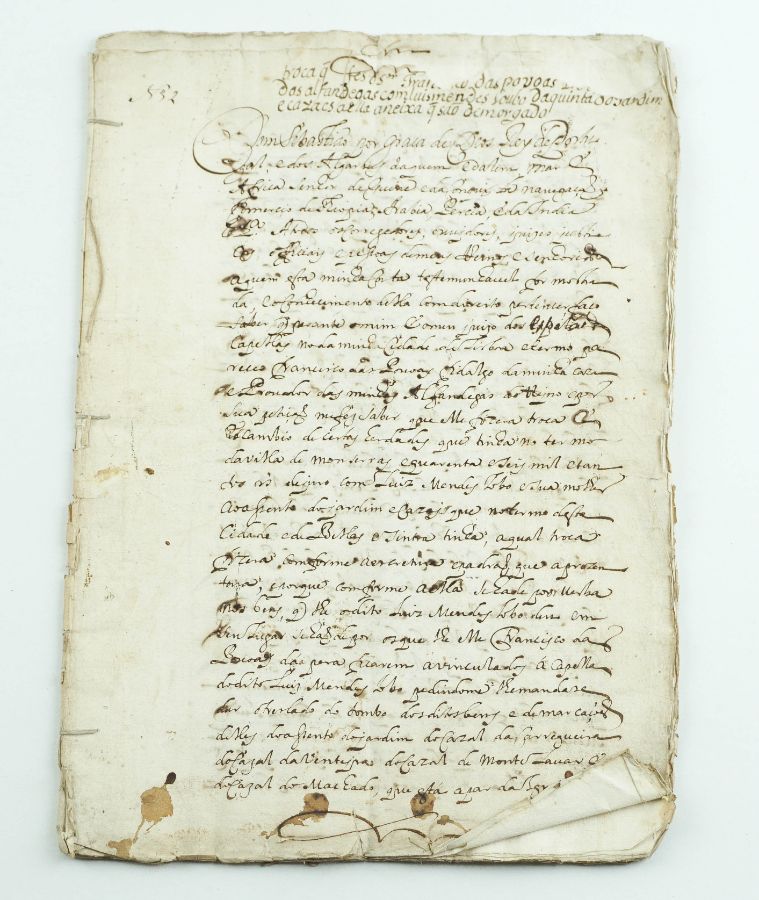 552
troca q fes o sr Fran co das povoas
das alfandegas com luis mendes lobo da quinta do jardim
e cazaes a ella aneixa q são de morgado
Dom Sebastião por graca de Deos Rey de Portu
gal e dos Algarves daquem e dalem mar
Africa senhor de Guine e da Conquista navegação
Comercio de Arabia Percia e da India
corregedores, ouvidores, juizes justiças
officiais e pessoas de meus Reinos e senhorios
a quem esta minha Carta testemunhavel for mostra
da e o conhecimento della com direito pertencer faco
saber que perante mim e o meu juizo dos
Capellas na da minha Cidade de Lisboa e termo pa
receo Francisco das Povoas fidalgo da minha casa
e Provedor das minhas Alfandegas do Reino e por
sua petição me fez saber que elle fizera troca e
escambio de certas herdades que tinha no termo
da villa de monserras e quarenta e seis mil e tan
tos rs de juro com Luiz Mendes lobo e sua molher
do assento do jardim e Cazaes que no termo desta
Cidade e de Bellas e Sintra tinha, a qual troca
fizera comforme a escretura e padrão que aprezen
tava, e porque comforme a ella se hade poor verba
nos bens, que o dito Luiz Mendes lobo deu em
seu lugar se hão de por os que elle Francisco das
Povoas daa pera ficarem avinculados a Capella
do dito Luiz Mendes Lobo pedindome lhe mandase
dar o treslado do tombo dos ditos bens e demarcações
delles do assento do jardim do Cazal da Carregueira
do Cazal da Ventespra do Cazal de Monte Lavar e
do Cazal do Machado, que está a par da